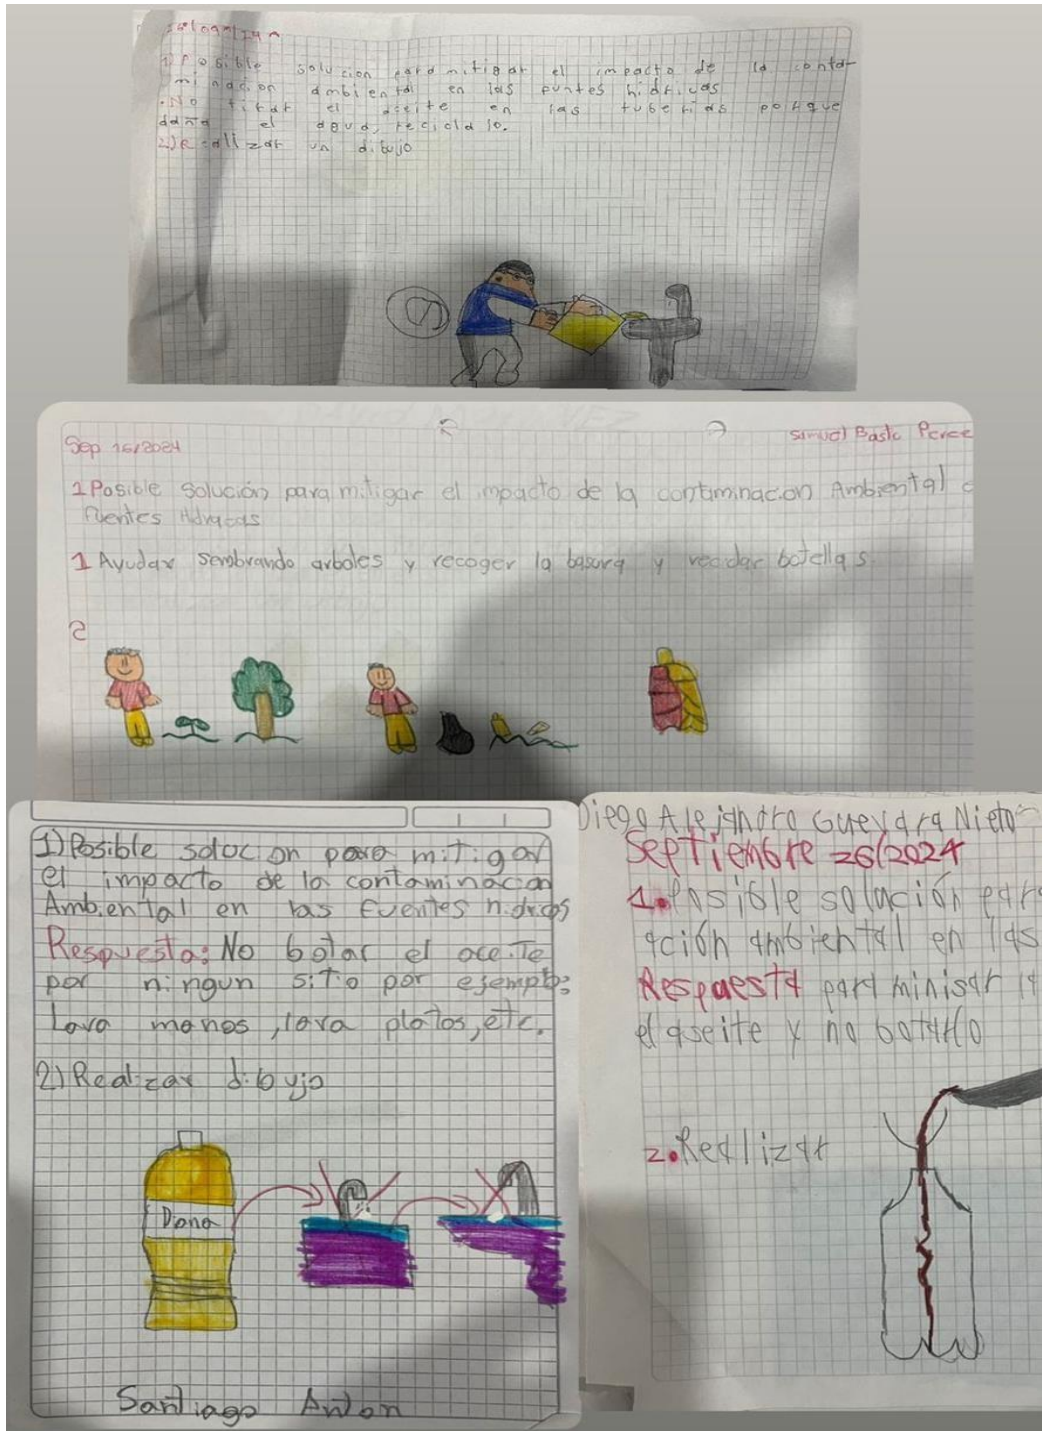 1) Posible solucion para mitigar el impacto de la conta-
minacion ambiental en las funtes hidricas
.No tirar el aceite en las tuberias porque
daña el agua, reciclalo.
2) Realizar un dibujo
Sep 16/2024
Samuel Basto
1 Posible solución para mitigar el impacto de la contiminacion Ambiental
fuentes Hidracas
1 Ayudar sembrando arboles y recoger la basura y recidar botellas.
2
1) Posible solucion para mitigar
el impacto de la contaminacion
Ambiental en las fuentes hidricas
Respuesta: No botar el aceite
por ningun sitio por ejemplo:
Lava manos, lava platos, etc.
2) Realizar dibujo
Diana
Santiago Anton
Diego Alejandro Guevara Nieto
Septiembre 26/2024
1. Posible solución par
ación ambiental en las
Respuesta para minisar la
el aseite y no botarlo
2. Realizar